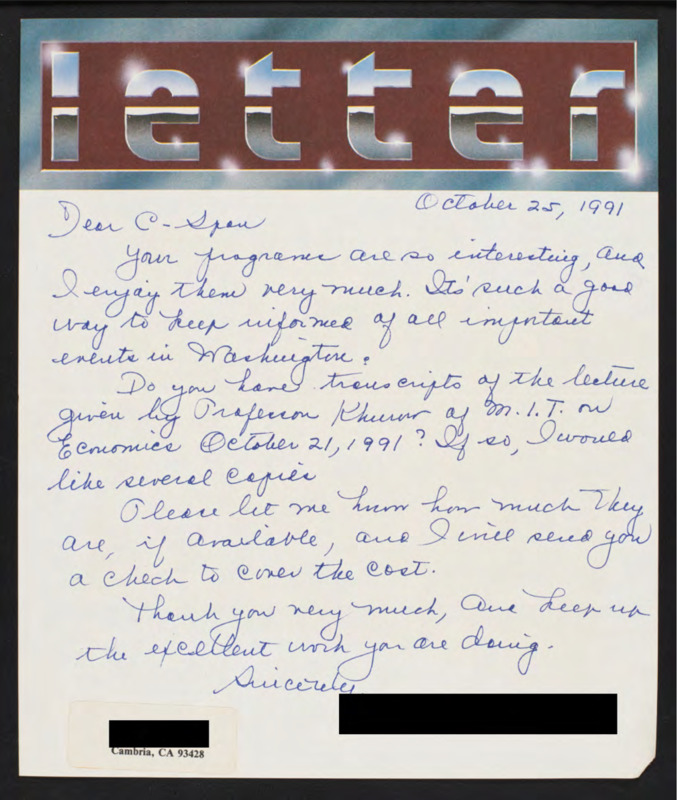 letter
October 25, 1991
Dear C-Span
Your programs are so interesting, and
I enjoy them very much. Its' such a good
way to keep informed of all important
events in Washington.
Do you have transcripts of the lecture
given by Professor Khurow of M.I.T. on
Economics October 21, 1991? If so, I would
like several copies
Please let me know how much they
are, if available, and I will send you
a check to cover the cost.
Thank you very much, and keep up
the excellent work you are doing.
Sincerely
Cambria, CA 93428